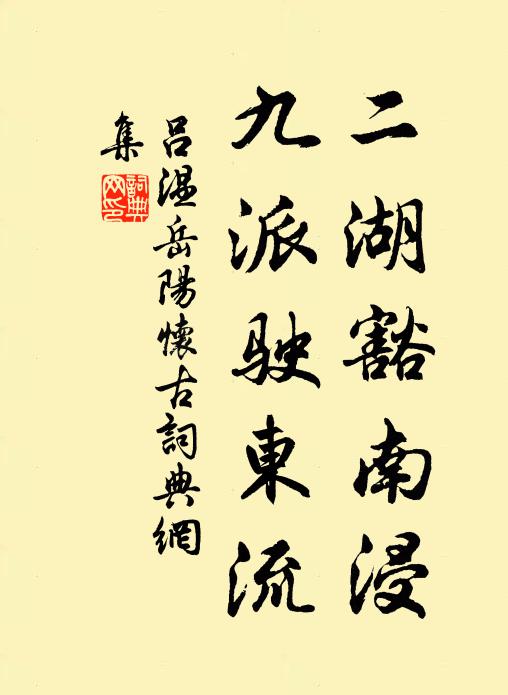 二湖豁南浸
九派駛東流
呂溫岳陽懷古詞典網
集
詞典
網印